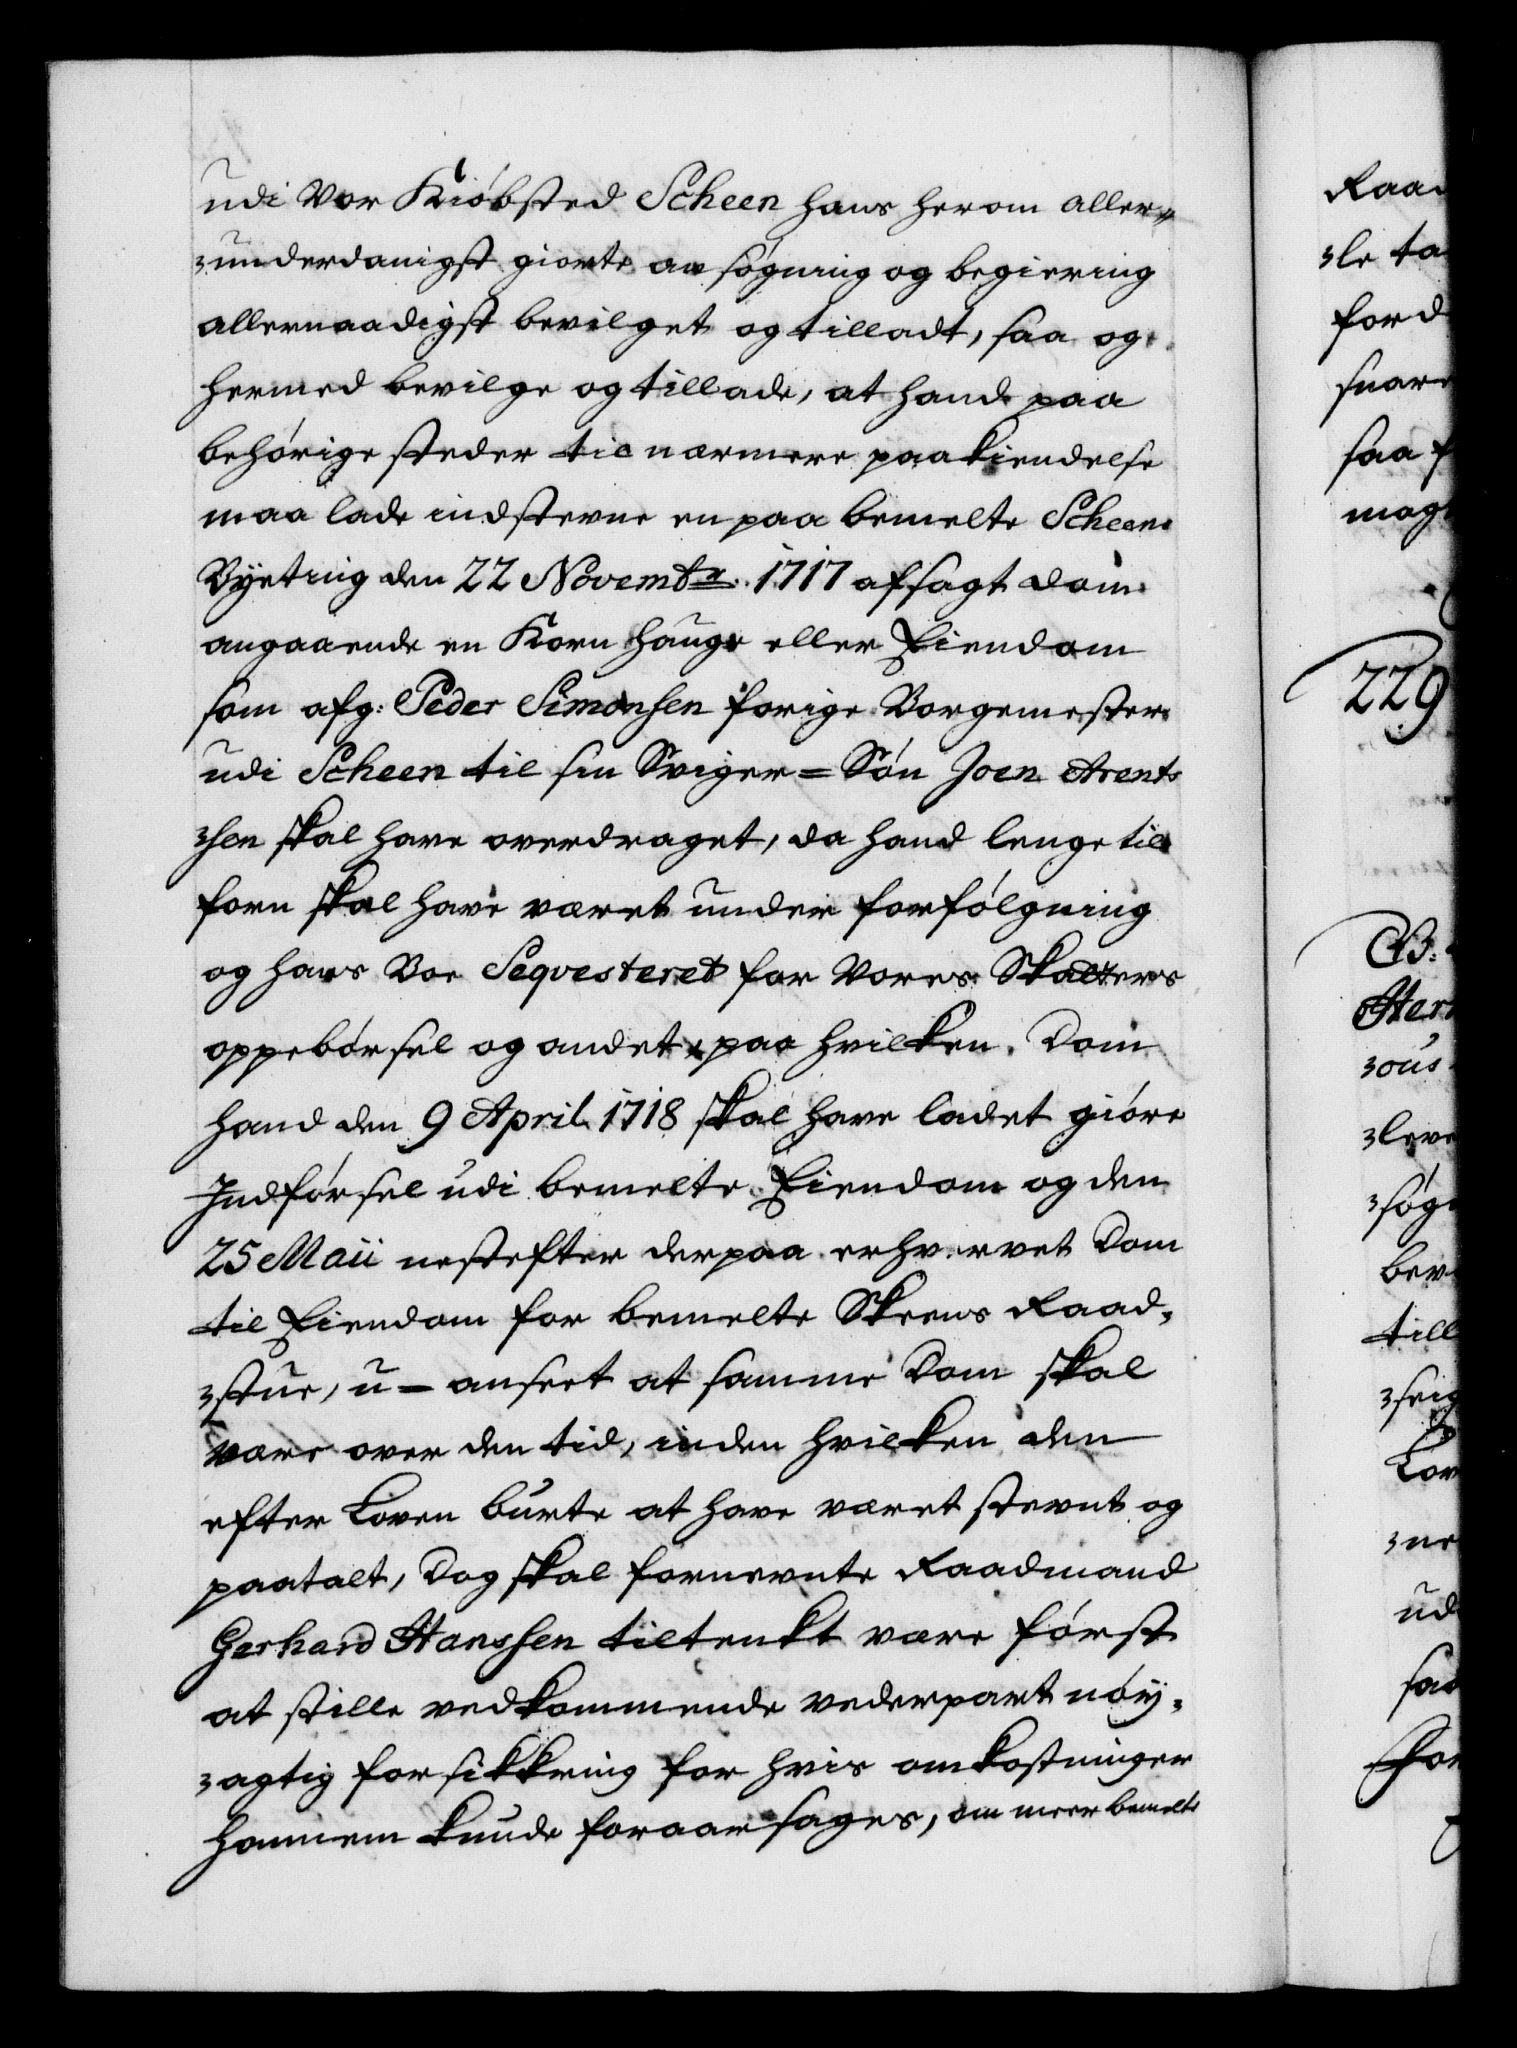 udi Vor Kiøbsted Scheen hans herom aller¬
¬underdanigst giorte ansøgning og begiering
allernaadigst bevilget og tilladt, saa og
hermed bevilge og tillade, at hand paa
behørige steder til nærmere paakiendelse
maa lade indstevne en paa bemelte Scheens
Byeting den 22 Novembr. 1717 afsagt Dom
angaaende en Korn hauge eller Eiendom
som afg: Peder Simonsen forige Borgemester
udi Scheen til sin Sviger=Søn Joen Arent¬
¬sen skal have overdraget, da hand lenge til¬
forn skal have været under forfølgning
og hans Boe Seqvesteret for Vores Skatters
oppebørsel og andet, paa hvilken Dom
hand den 9 April 1718 skal have ladet giøre
Indførsel udi bemelte Eiendom og den
25 Maii nestefter derpaa erhvervet Dom
til Eiendom for bemelte Skeens Raad¬
¬stue, u=anseet at samme Dom skal
være over den tid, inden hvilken den
efter Loven burte at have været stevnt og
paatalt, Dog skal fornevnte Raadmand
Gerhard Hanssen tiltenkt være først
at stille vedkommende vederpart nøy¬
¬agtig forsikkring for hvis omkostninger
hannem kunde foraarsages, om meerbemelte
Raad
¬le ta
ford
snare
saa f
magt
229
B:
Her
¬ous
¬leve
¬søg
bev
till
¬seig
Lov
¬ne
ud
saa
For